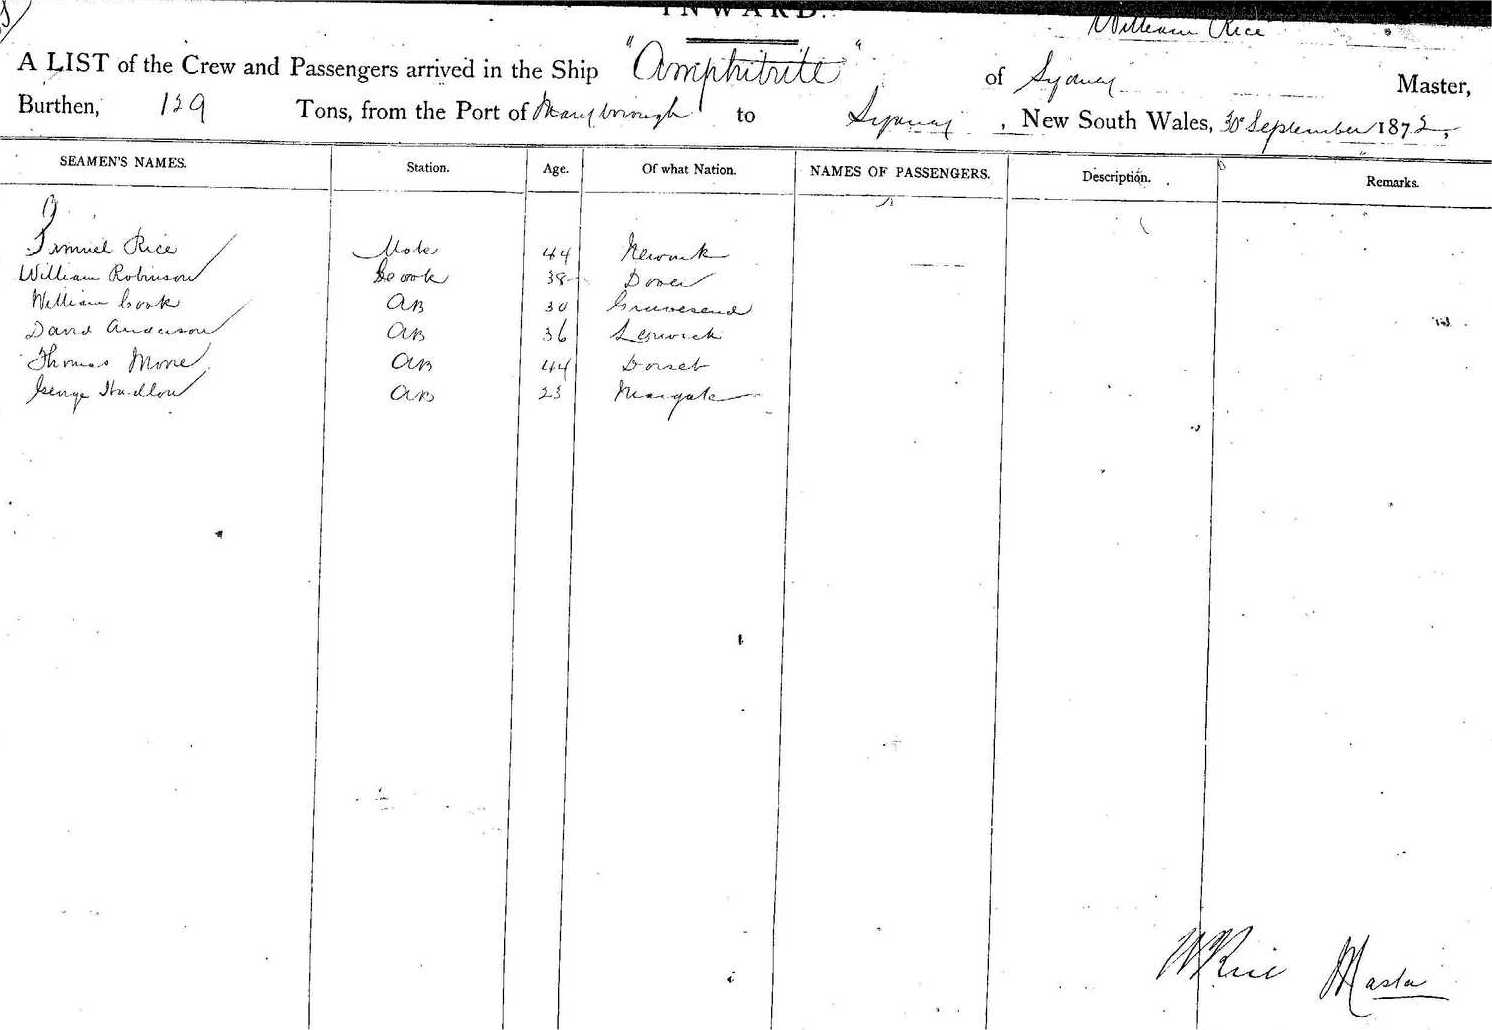 INWARD.
William Rice
A LIST of the Crew and Passengers arrived in the Ship "Amphitrite" of Sydney Master,
Burthen, 129 Tons, from the Port of Maryborough to Sydney, New South Wales, 30 September 1872,
SEAMEN'S NAMES. Station. Age. Of what Nation. NAMES OF PASSENGERS. Description. Remarks.
Samuel Rice Mate 44 Newark
William Robinson Cook 38 Dover
William Cook AB 30 Gravesend
David Anderson AB 36 Lerwick
Thomas AB 44 Dorset
George AB 23 Margate
W Rice Master